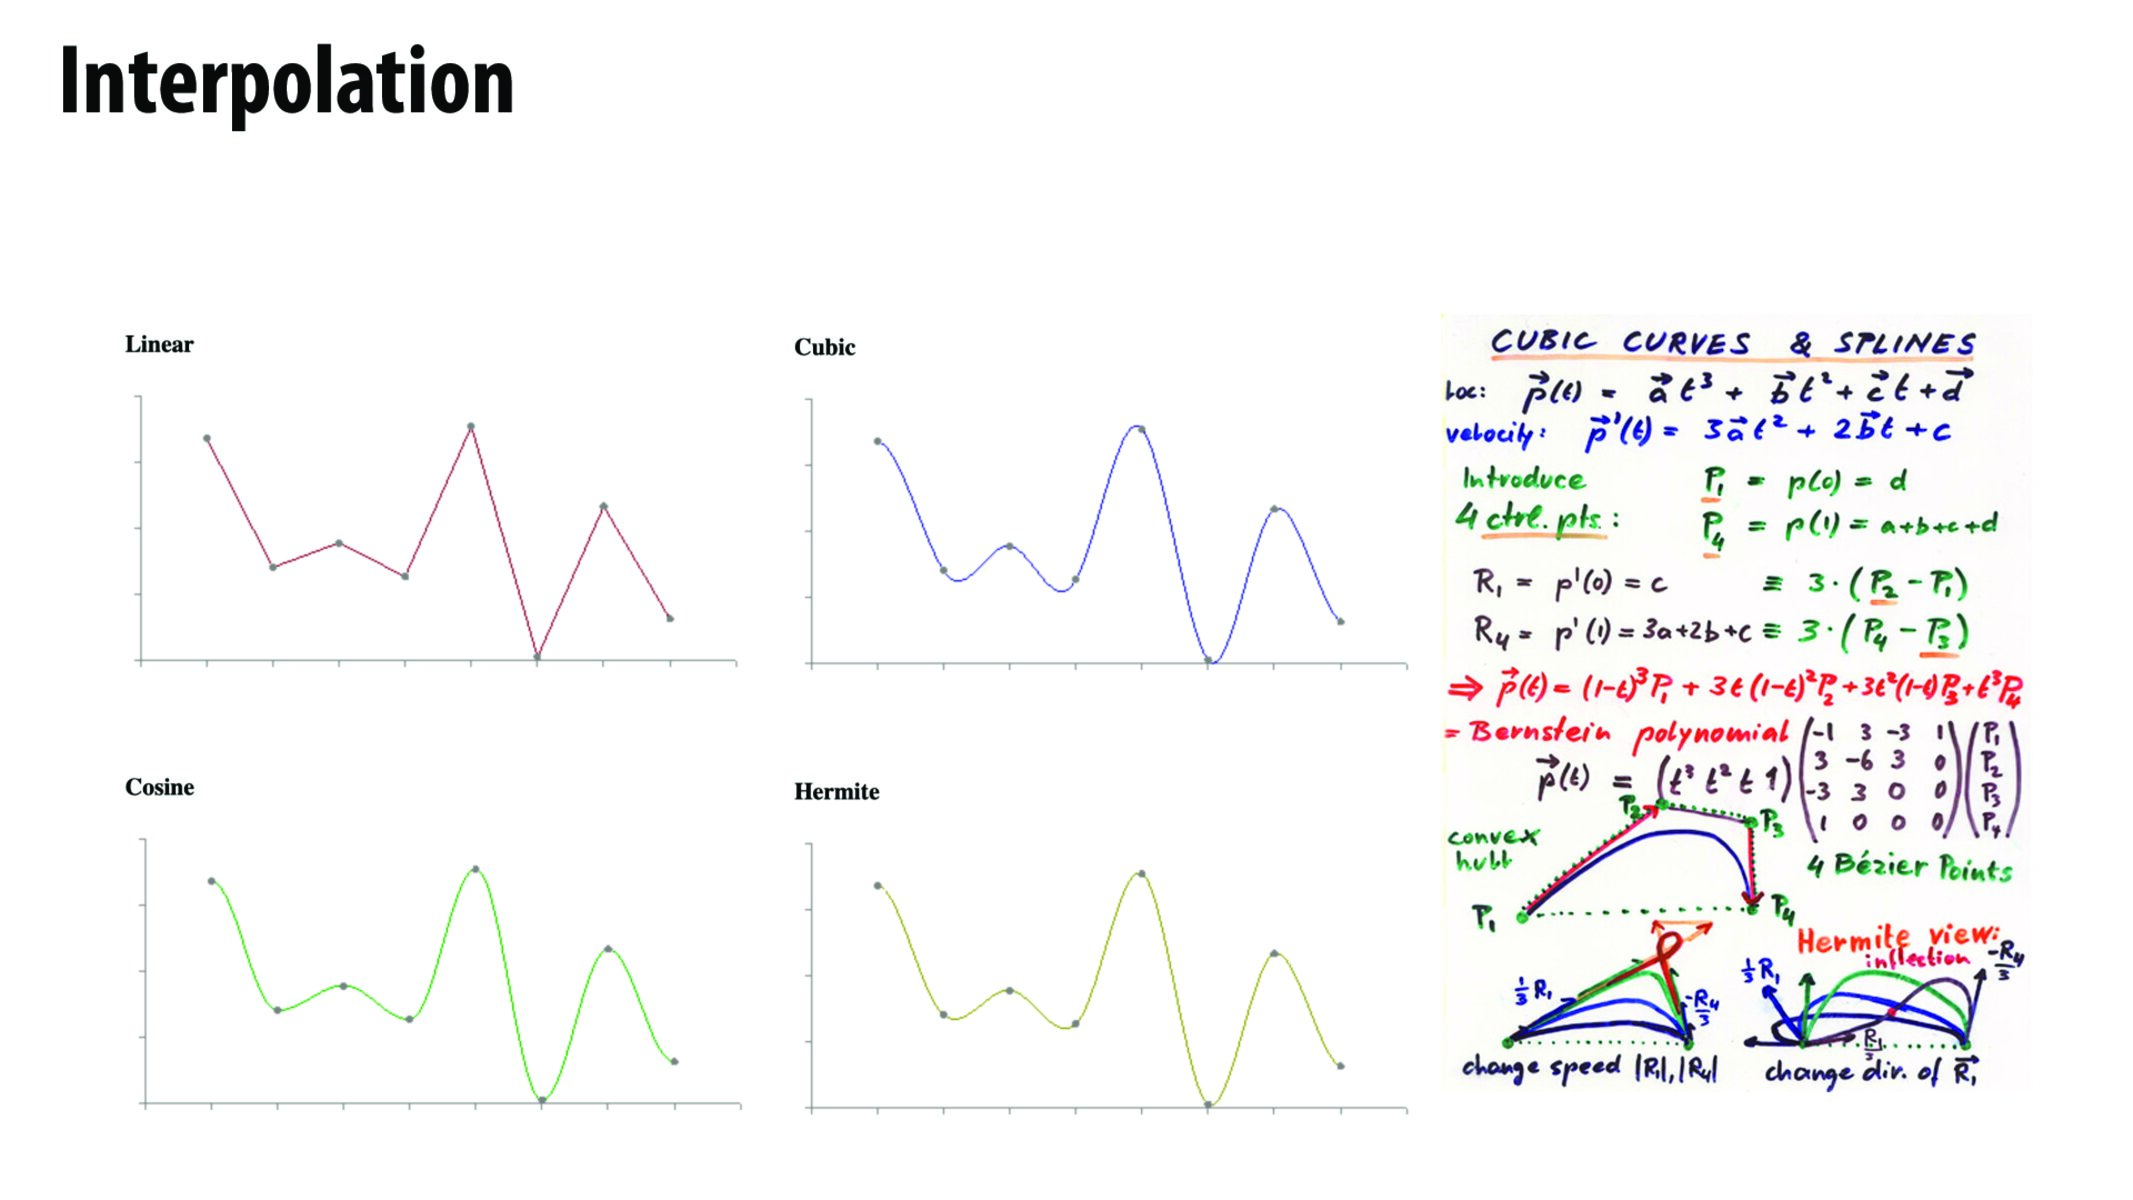 Interpolation
Linear
Cubic
Cosine
Hermite
CUBIC CURVES & SPLINES
Loc: p⃗(t) = a⃗ t³ + b⃗ t² + c⃗ t + d⃗
velocity: p⃗'(t) = 3a⃗ t² + 2b⃗ t + c
Introduce P₁ = p(0) = d
4 ctrl. pts: P₄ = p(1) = a+b+c+d
R₁ = p'(0) = c ≡ 3·(P₂ - P₁)
R₄ = p'(1) = 3a+2b+c ≡ 3·(P₄ - P₃)
⇒ p⃗(t) = (1-t)³P₁ + 3t(1-t)²P₂ + 3t²(1-t)P₃ + t³P₄
= Bernstein polynomial
p⃗(t) = (t³ t² t 1)
-1 3 -3 1 P₁
3 -6 3 0 P₂
-3 3 0 0 P₃
1 0 0 0 P₄
P₂
P₃
convex
hull
4 Bézier Points
P₁
P₄
Hermite view:
inflection
-R₄/3
1/3 R₁
1/3 R₁
-R₄/3
R₁/3
change speed |R₁|, |R₄|
change dir. of R⃗₁